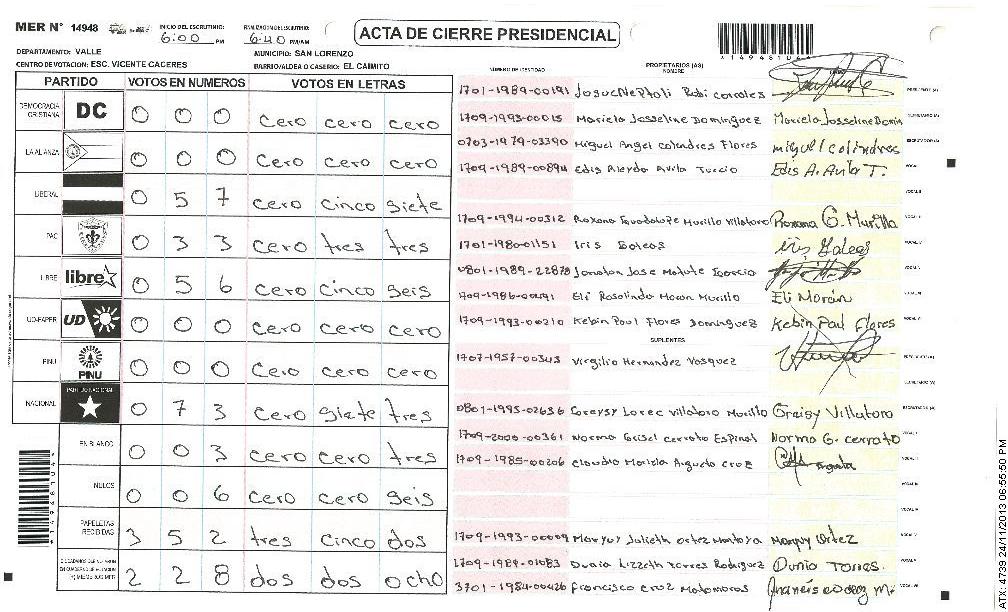 MER N° 14948 INICIO DEL ESCRUTINIO: 6:00 PM FINALIZACION DEL ESCRUTINIO: 6:40 PM/AM
ACTA DE CIERRE PRESIDENCIAL
1494810
DEPARTAMENTO: VALLE MUNICIPIO: SAN LORENZO
CENTRO DE VOTACION: ESC. VICENTE CACERES BARRIO/ALDEA O CASERIO: EL CAIMITO
PARTIDO VOTOS EN NUMEROS VOTOS EN LETRAS
DEMOCRACIA CRISTIANA DC 0 0 0 cero cero cero
LA ALIANZA 0 0 0 cero cero cero
LIBERAL 0 5 7 cero cinco siete
PAC 0 3 3 cero tres tres
LIBRE libre 0 5 6 cero cinco seis
UD-FAPER UD 0 0 0 cero cero cero
PINU PINU 0 0 0 cero cero cero
NACIONAL PARTIDO NACIONAL 0 7 3 cero siete tres
EN BLANCO 0 0 3 cero cero tres
NULOS 0 0 6 cero cero seis
PAPELETAS RECIBIDAS 3 5 2 tres cinco dos
2 2 8 dos dos ocho
NUMERO DE IDENTIDAD PROPIETARIOS (AS) NOMBRE
1701-1989-00191
1709-1993-00015 Mariela Josseline Dominguez Mariela Josseline
0703-1979-03390 Miguel Angel Colindres Flores miguel colindres
1709-1989-00894 Edis Avila Edis A. Avila T.
1709-1994-00312 Roxana Guadalupe Murillo Villatoro Roxana G. Murillo
1701-1980-01151 Iris
0801-1989-22878 Jonatan Jose Matute
Eli Rosalindo Moran Murillo Eli Morán
1709-1993-00210 Kebin Paul Flores Dominguez Kebin Paul Flores
SUPLENTES
1707-1957-00343 Virgilio Hernandez Vasquez
0801-1995-02636 Villatoro Murillo Greisy Villatoro
1709-2000-00361 Norma Grisel Cerrato Espinal Norma G. cerrato
1709-1985-00206 Claudia Mariela Argueta Cruz
1709-1993-00009 Julieth Ortez Montoya Ortez
1709-1989-01083 Dunia Lizzeth Torres Rodriguez Dunia Torres.
3701-1984-00426 Francisco Cruz Matamoros
ATX: 4739 24/11/2013 06:55:50 PM